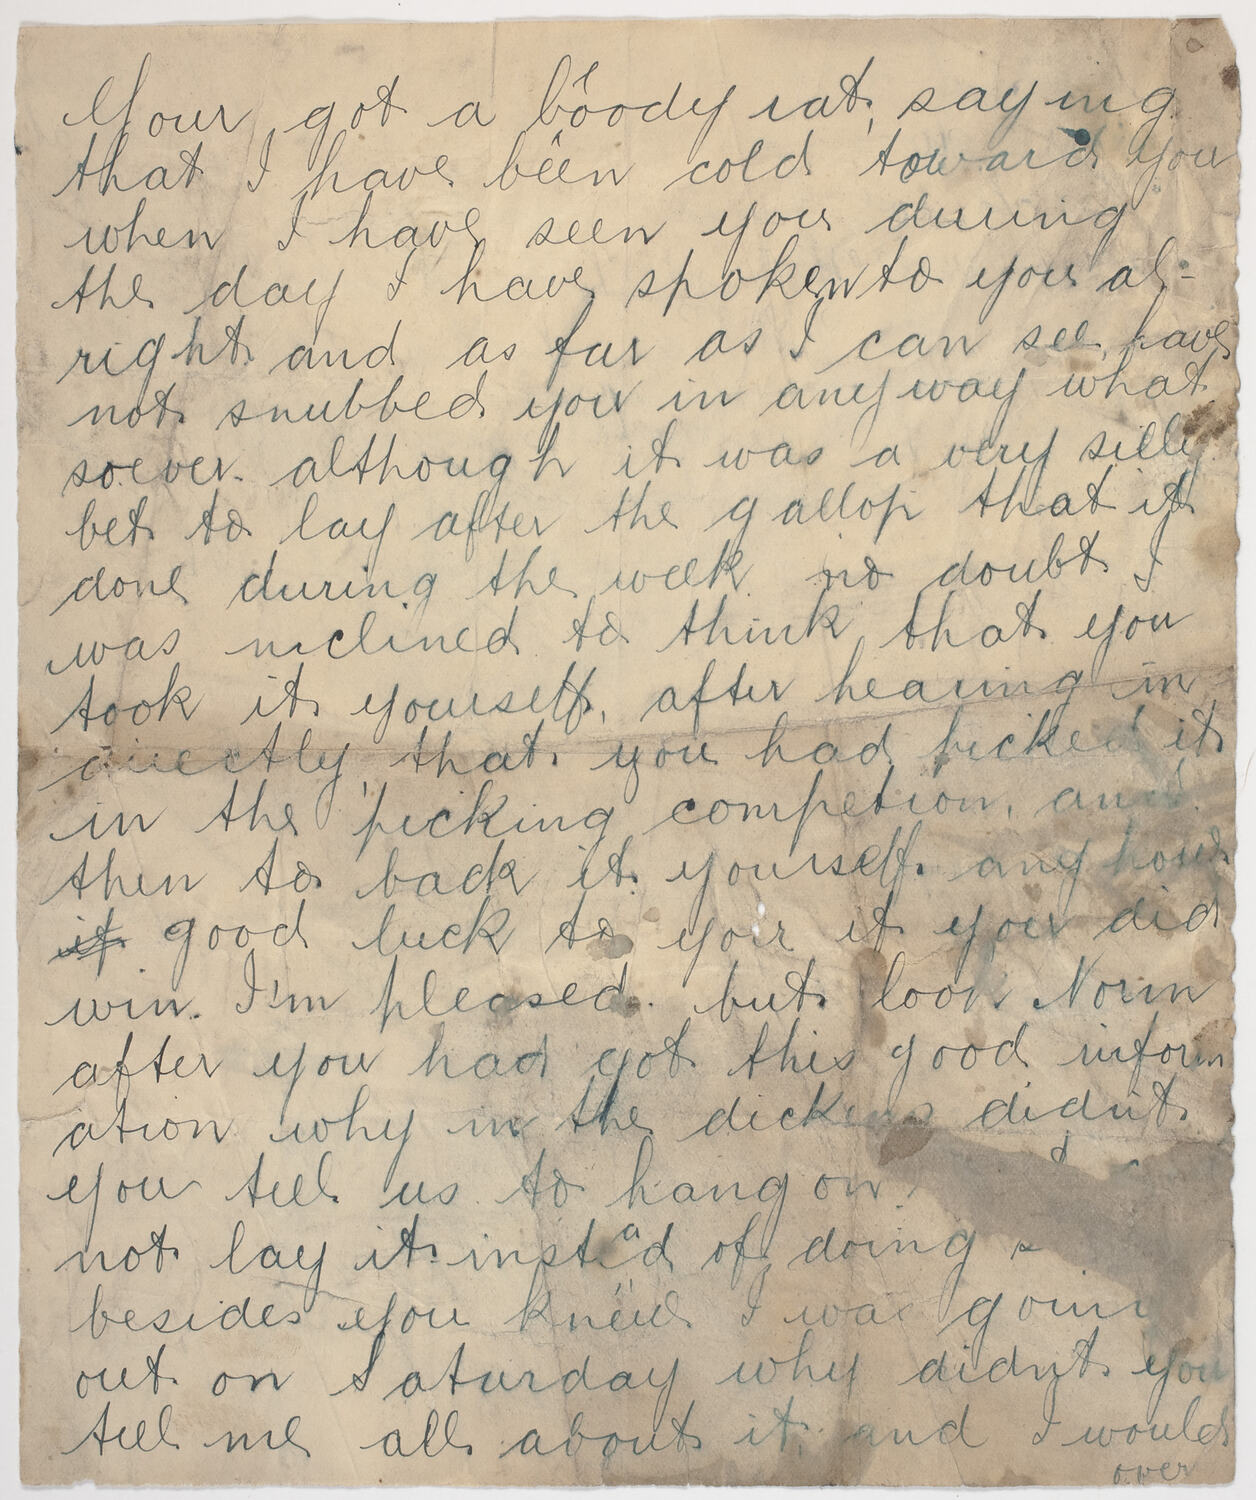 Your got a bloody rat, saying
that I have been cold toward you
when I have seen you during
the day I have spoken to you al-
right and as far as I can see, have
not snubbed you in anyway what
soever. although it was a very silly
bet to lay after the gallop that it
done during the week no doubt I
was inclined to think, that you
took it yourself, after hearing in
directly that you had picked it
in the picking competion, and
then to back it yourself. any how
it good luck to you if you did
win. I'm pleased. but look Norm
after you had got this good inform
ation why in the dickens didn't
you tell us to hang on
not lay it instead of doing
besides you knew I was going
out on Saturday why didn't you
tell me all about it, and I would
over